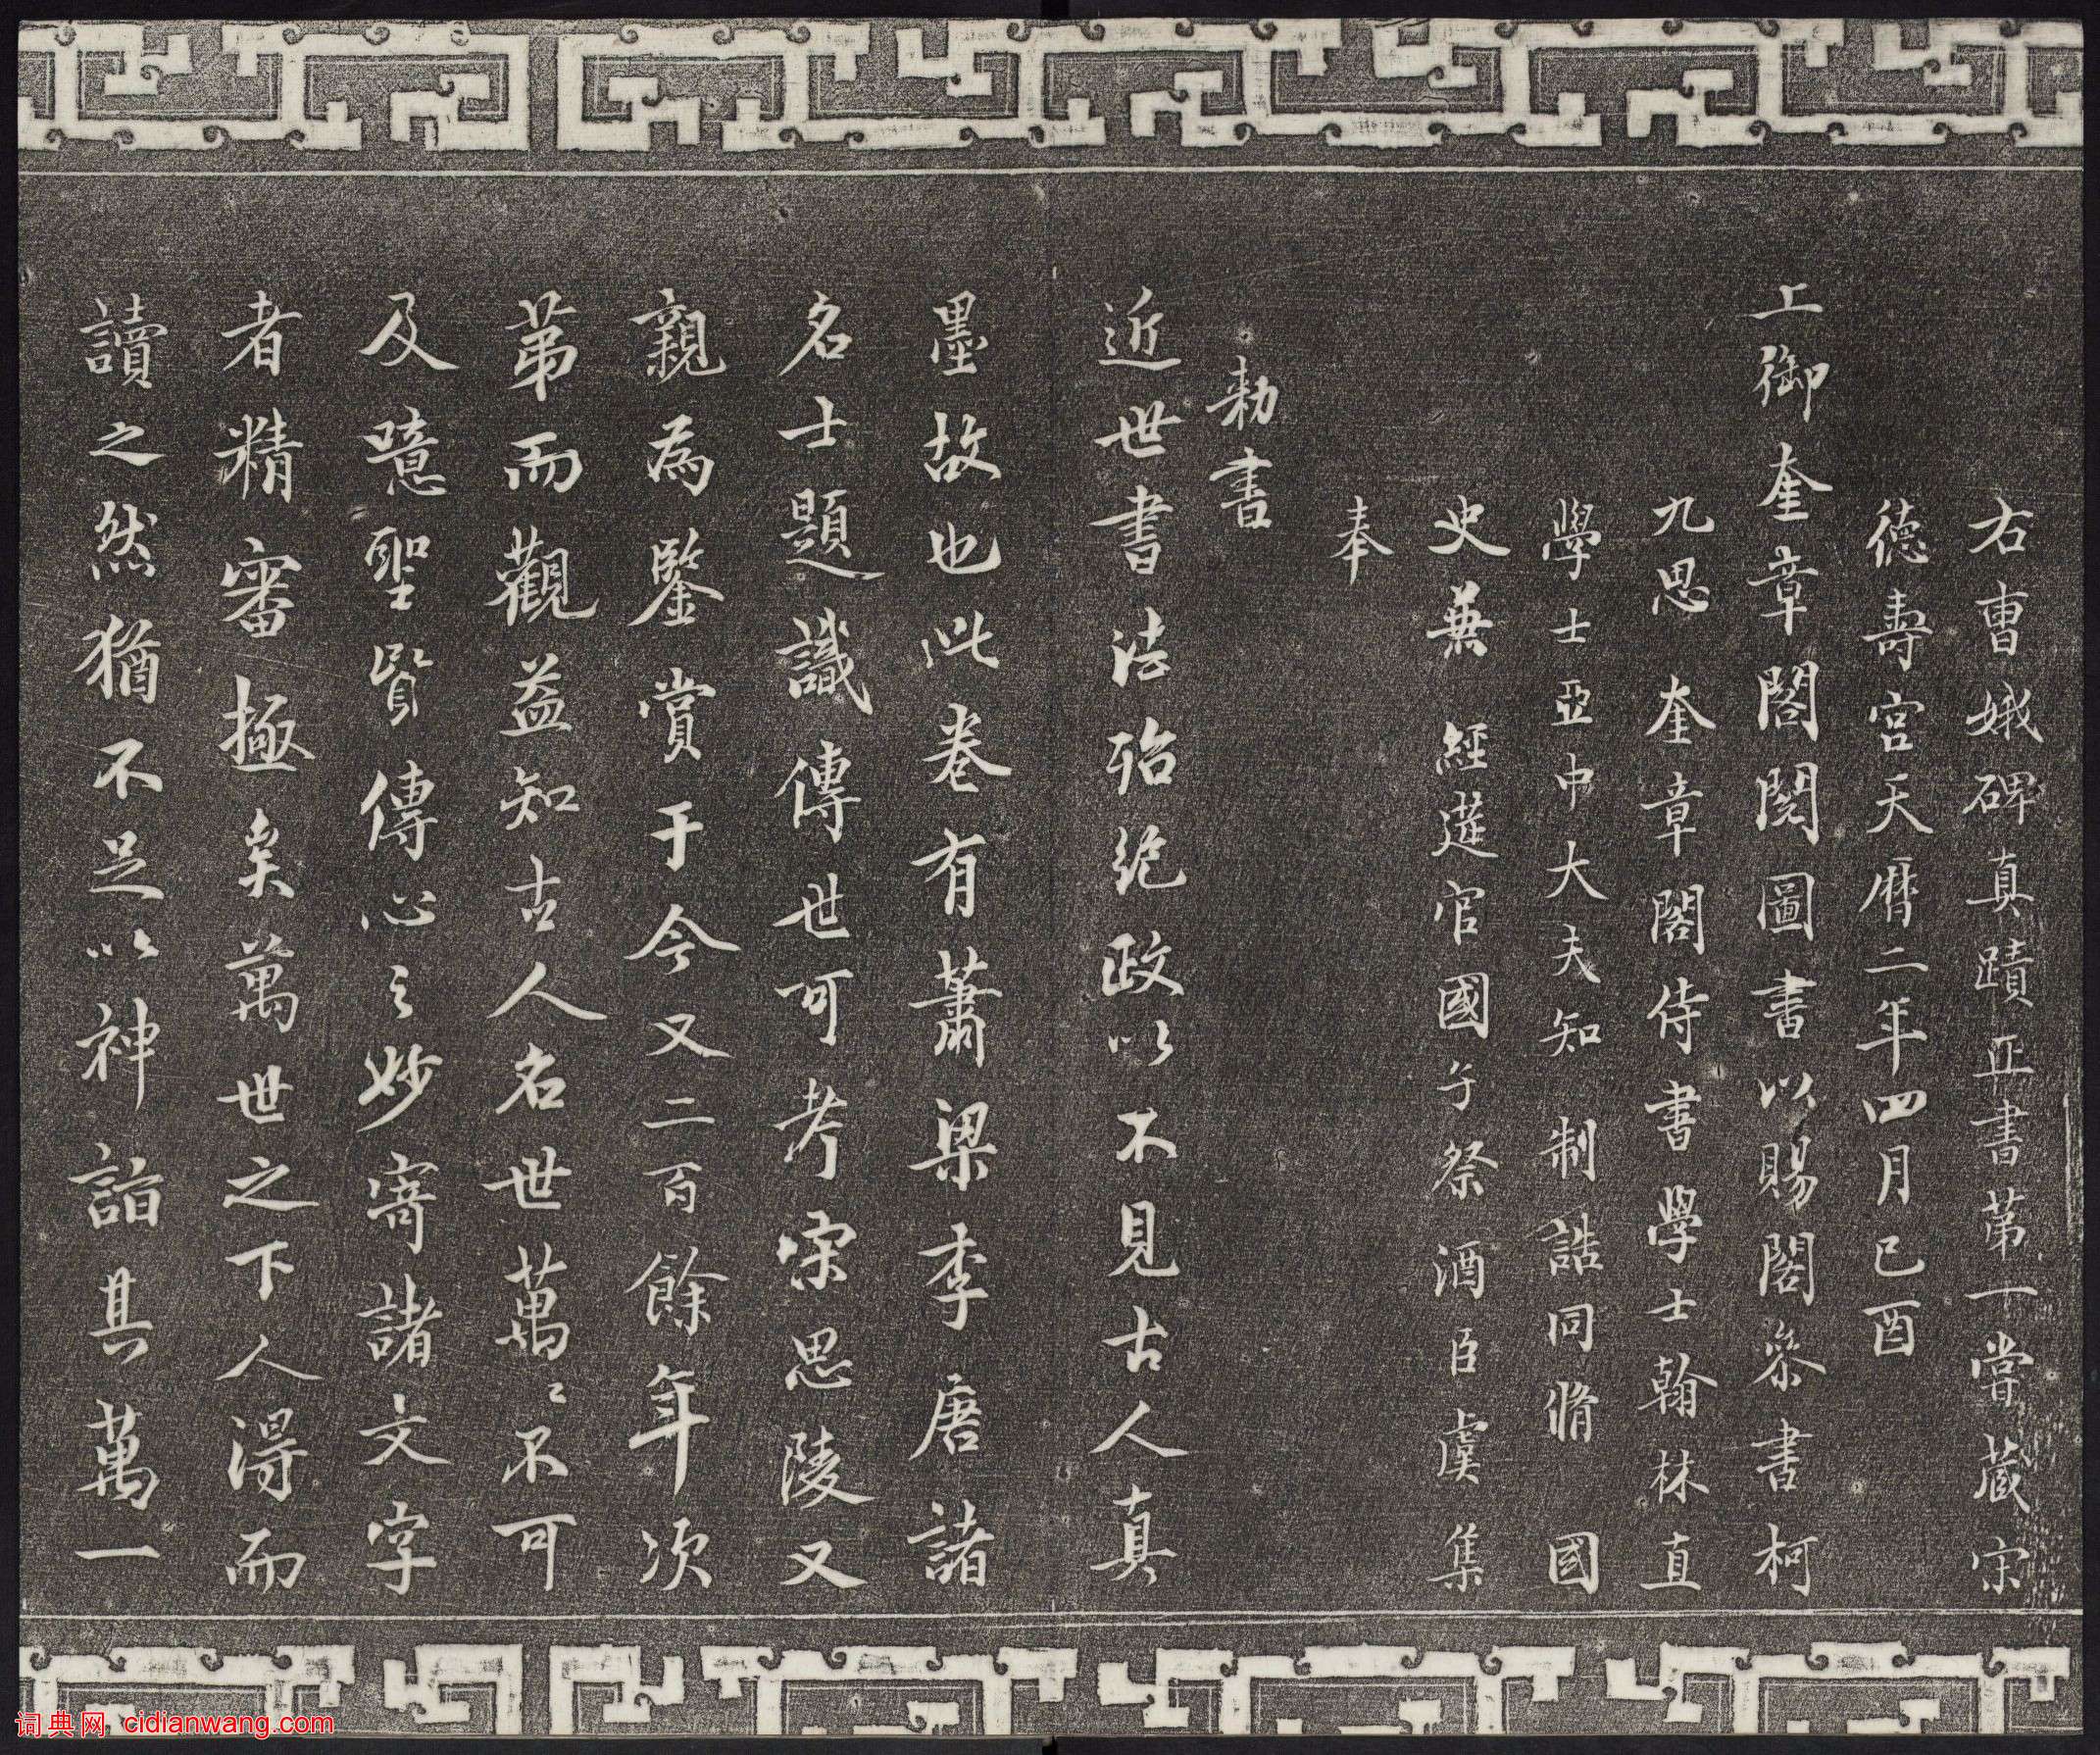 右曹娥碑真蹟正書第一嘗藏宋
德壽宮天曆二年四月己酉
上御奎章閣閱圖書以賜閣參書柯
九思奎章閣侍書學士翰林直
學士亞中大夫知制誥同脩國
史兼經筵官國子祭酒臣虞集
奉
勅書
近世書法殆絕政以不見古人真
墨故也此卷有蕭梁李唐諸
名士題識傳世可考宋思陵又
親為鑒賞于今又二百餘年次
苐而觀益知古人名世萬〻不可
及噫聖賢傳心之妙寄諸文字
者精審極矣萬世之下人得而
讀之然猶不足以神詣其萬一
词典网 cidianwang.com